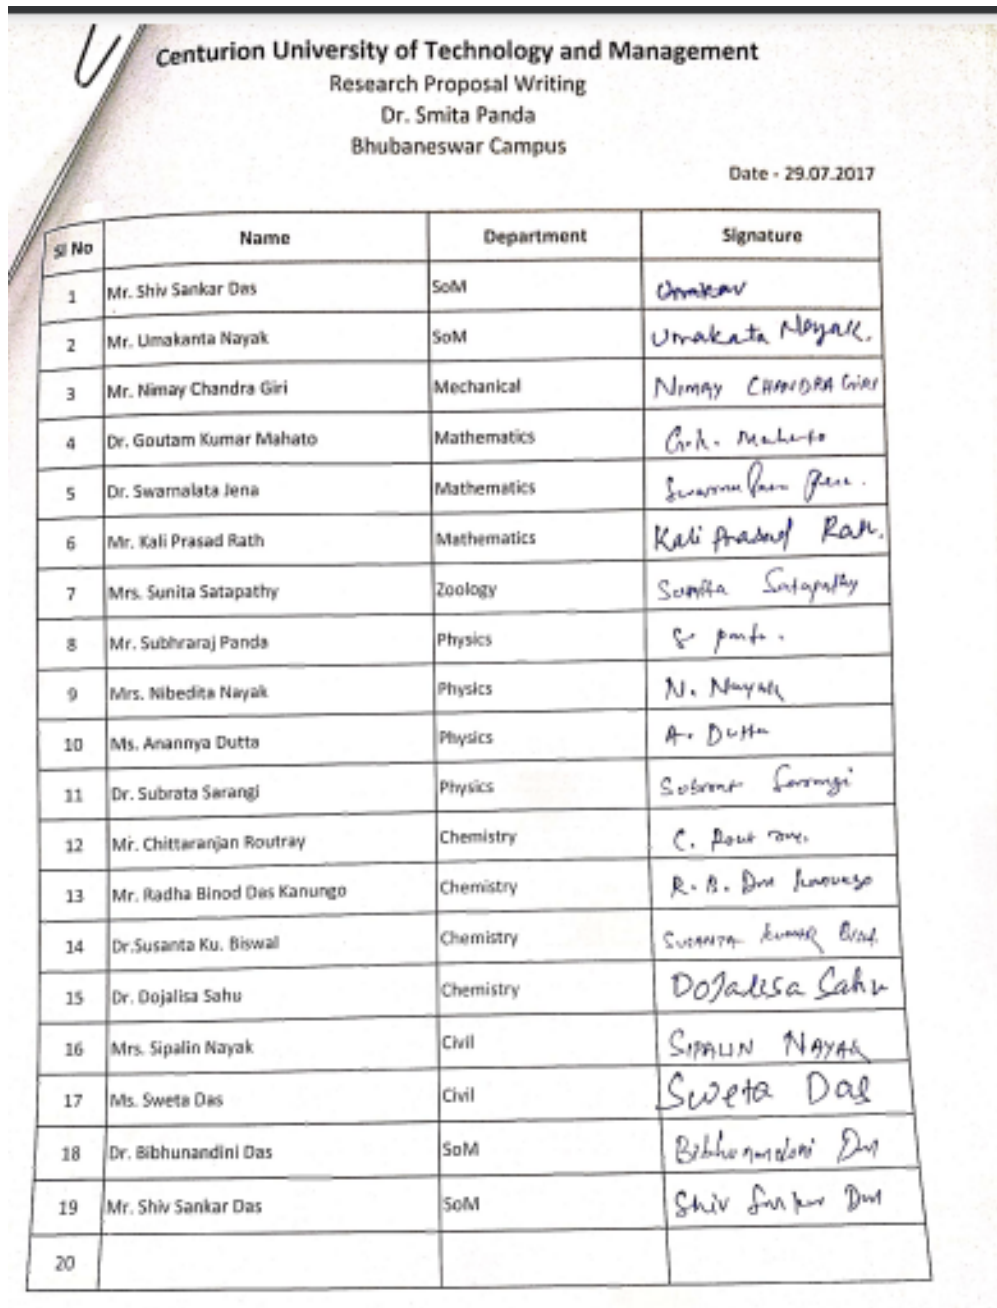 Centurion University of Technology and Management
Research Proposal Writing
Dr. Smita Panda
Bhubaneswar Campus
Date - 29.07.2017
Sl No Name Department Signature
1 Mr. Shiv Sankar Das SoM
2 Mr. Umakanta Nayak SoM Umakata Nayak.
3 Mr. Nimay Chandra Giri Mechanical NIMAY CHANDRA GIRI
4 Dr. Goutam Kumar Mahato Mathematics G.k. Mahato
5 Dr. Swarnalata Jena Mathematics
6 Mr. Kali Prasad Rath Mathematics Kali Prasad Rath.
7 Mrs. Sunita Satapathy Zoology Sunita Satapathy
8 Mr. Subhraraj Panda Physics S. Panda.
9 Mrs. Nibedita Nayak Physics N. Nayak
10 Ms. Anannya Dutta Physics A. Dutta
11 Dr. Subrata Sarangi Physics Subrat Sarangi
12 Mr. Chittaranjan Routray Chemistry C. Rout ray.
13 Mr. Radha Binod Das Kanungo Chemistry R. B. Das Kanungo
14 Dr.Susanta Ku. Biswal Chemistry SUSANTA KUMAR
15 Dr. Dojalisa Sahu Chemistry DOJalisa Sahu
16 Mrs. Sipalin Nayak Civil SIPALIN NAYAK
17 Ms. Sweta Das Civil Sweta Das
18 Dr. Bibhunandini Das SoM Bibhunandini Das
19 Mr. Shiv Sankar Das SoM Shiv Sankar Das
20